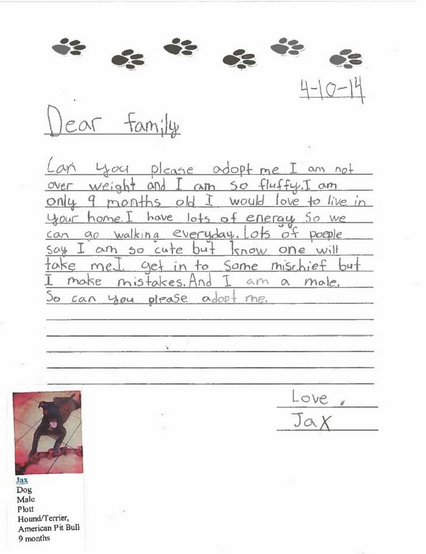 4-10-14
Dear family
Can you please adopt me I am not
over weight and I am so fluffy. I am
only 9 months old I would love to live in
your home. I have lots of energy so we
can go walking everyday. Lots of poeple
say I am so cute but know one will
take me. I get in to some mischief but
I make mistakes. And I am a male.
So can you please adopt me.
Love,
Jax
Jax
Dog
Male
Plott
Hound/Terrier,
American Pit Bull
9 months